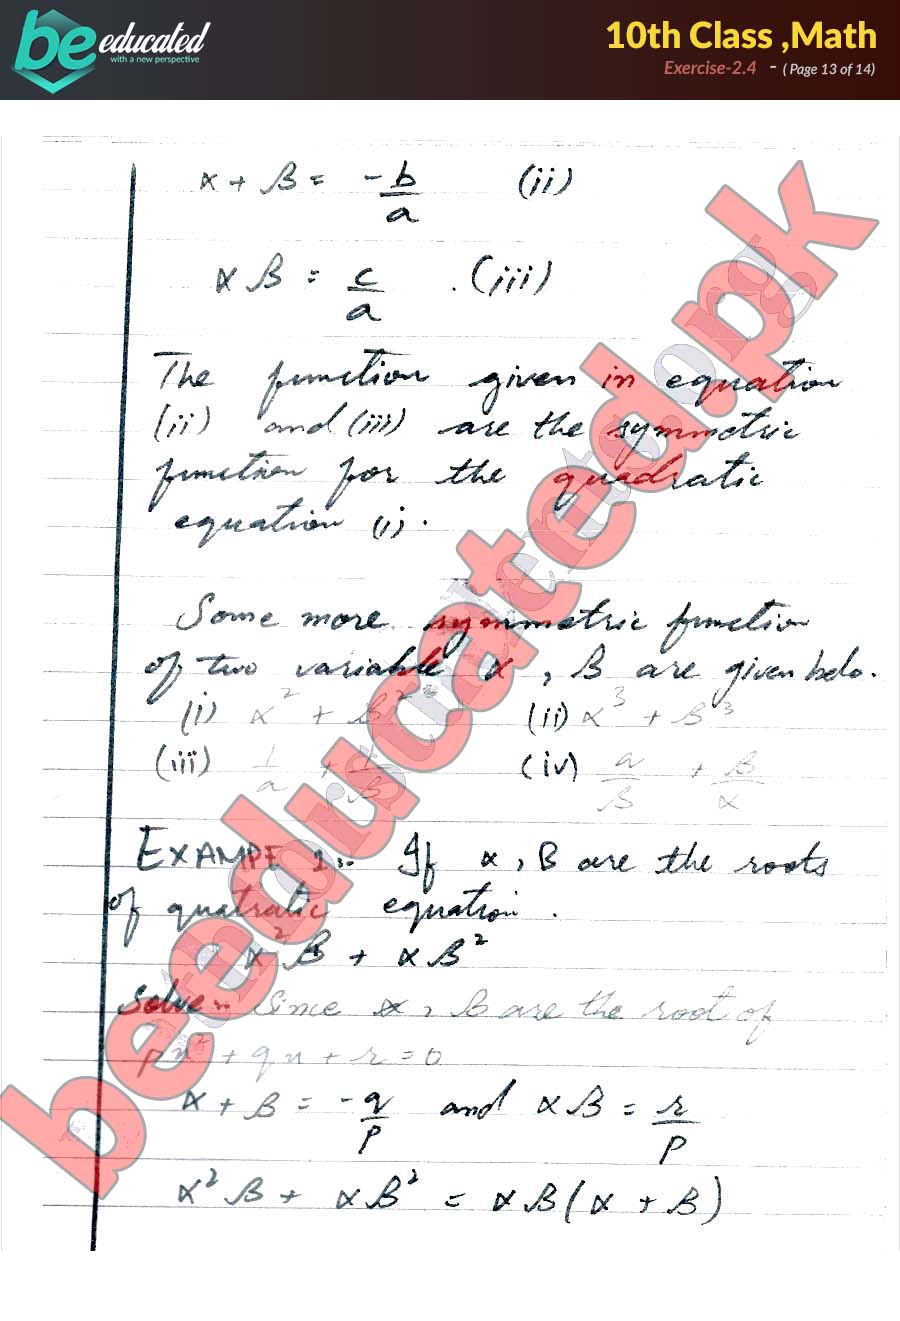 be educated
with a new perspective
10th Class ,Math
Exercise-2.4 - ( Page 13 of 14)
α + β = -b/a (ii)
αβ = c/a .(iii)
The function given in equation
(ii) and (iii) are the symmetric
function for the quadratic
equation (i).
Some more symmetric function
of two variable α, β are given belo.
(i) α² + β² (ii) α³ + β³
(iii) 1/α + 1/β (iv) α/β + β/α
EXAMPE 1:- If α, β are the roots
of quatratic equation.
α²β + αβ²
Solve:- Since α, β are the root of
px² + qx + r = 0
α + β = -q/p and αβ = r/p
α²β + αβ² = αβ(α + β)
beeducated.pk